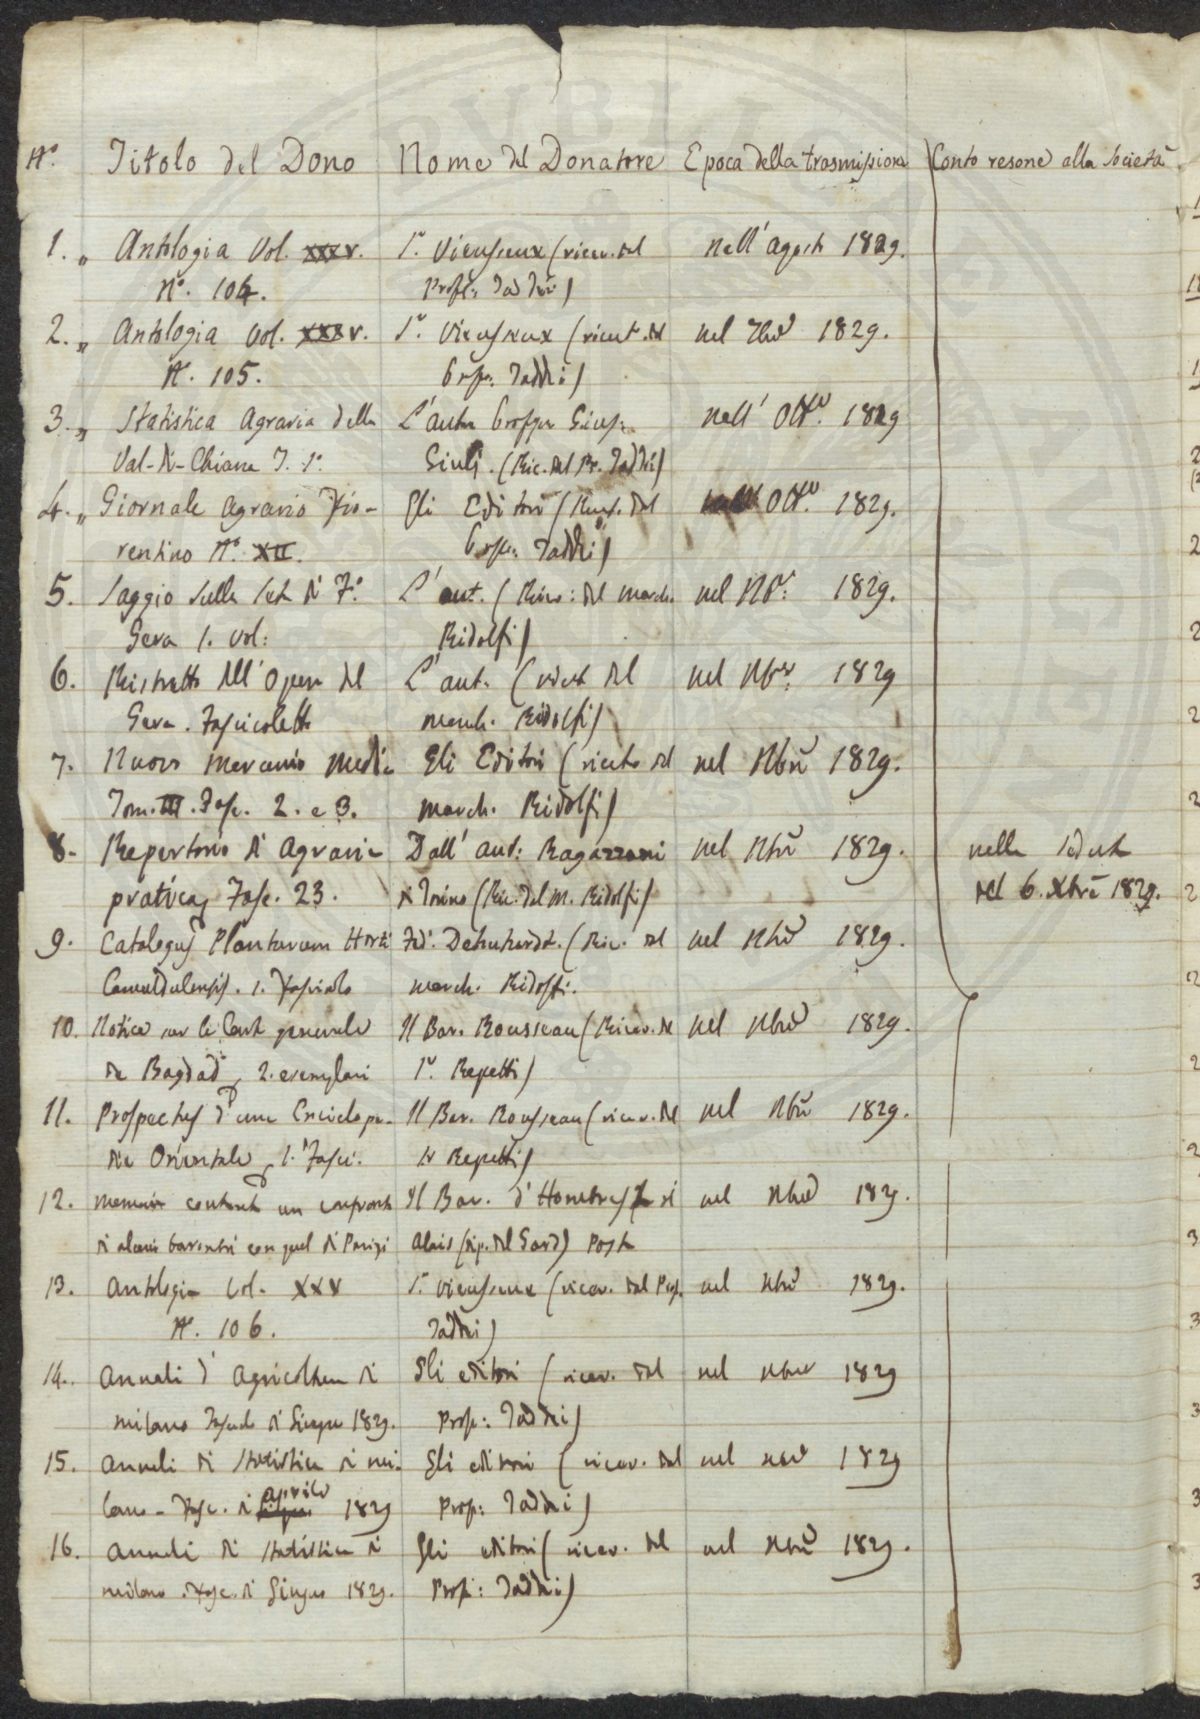 N.º Titolo del Dono Nome del Donatore Epoca della trasmissione Conto resone alla Società
1. „ Antologia Vol. XXXV. S.r Vieusseux (ricev. dal nell' agosto 1829.
N.º 104. Prof.: Taddei)
2. „ Antologia Vol. XXXV. S.r Vieusseux (ricevt. dal nel 7bre 1829.
N. 105. Prof.: Taddei)
3. „ Statistica Agraria della L'autr Professr Giusp. nell' Ott.e 1829
Val-di-Chiana T. 1.º Giulj. (Ric. dal Pr. Taddei)
4. „ Giornale Agrario Fio- Gli Editori (Ricev. dal Ott.e 1829.
rentino N.º XII. Prof.: Taddei)
5. Saggio sulle Sete di F.º L'aut. (Ricev: dal March. nel Nbr: 1829.
Gera 1. vol: Ridolfi)
6. Ristretto dell' Opera del L'aut. (ricevt dal nel Nbre. 1829
Gera. Fascicoletto March. Ridolfi)
7. Nuovo Mercurio Gli Editori (ricevto dal nel Nbre 1829.
Tom. III. Fasc. 2. e 3. March. Ridolfi)
8. Repertorio di Agraria Dall' aut: Ragazzoni nel Nbre 1829. nella seduta
pratica, Fasc. 23. di Torino (Ric. dal M. Ridolfi) del 6. Xbre 1829.
9. Catalogus Plantarum Horti Fed. Dehnhardt. (Ric. dal nel Nbre 1829.
Camaldulensis. 1. Fascicolo March. Ridolfi.
10. Notice sur la Cart generale Il Bar. Rousseau (Ricev. dal nel Nbre 1829.
de Bagdad, 2. esemplari S.r Repetti)
11. Prospectus d'une Enciclope- Il Bar. Rousseau (ricev. dal nel Nbre 1829.
die Orientale, 1. Fasci. Sr Repetti)
12. Memoir contenent un confronto Il Bar. d'Hombres di nel Nbre 1829.
di alcuni barometri con quel di Parigi Alais (dip. del Gard) Posta
13. Antologia Vol. XXXV S.r Vieusseux (ricev. dal Prof. nel Nbre 1829.
N.º 106. Taddei)
14. Annali d' Agricoltura di Gli editori (ricev. dal nel Nbre 1829
Milano Fascicolo di Giugno 1829. Prof: Taddei)
15. Annali di Statistica di Mi- Gli editori (ricev. dal nel Nbre 1829
aprile
lano - Fasc. di 1829 Prof: Taddei)
16. Annali di Statistica di Gli editori (ricev. dal nel Nbre 1829.
Milano. Fasc. di Giugno 1829. Prof: Taddei)